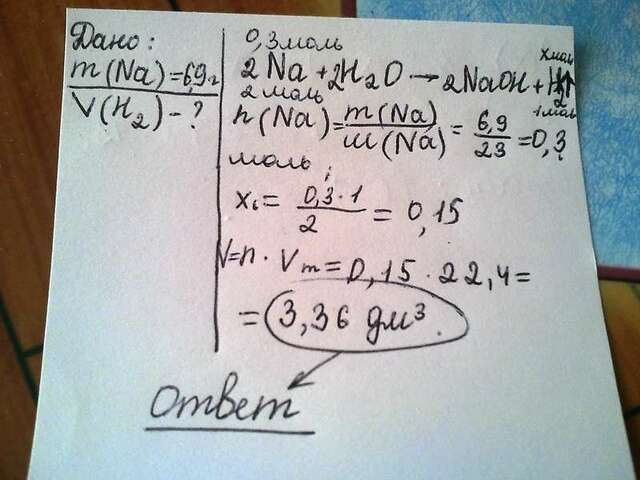 Дано:
m(Na)=6,9г
V(H₂)-?
0,3моль
xмоль
2Na+2H₂O→2NaOH+H₂↑
2моль
1моль
n(Na)=m(Na)/M(Na)=6,9/23=0,3
моль;
x₁=0,3·1/2=0,15
V=n·Vm=0,15·22,4=
=3,36 дм³.
Ответ